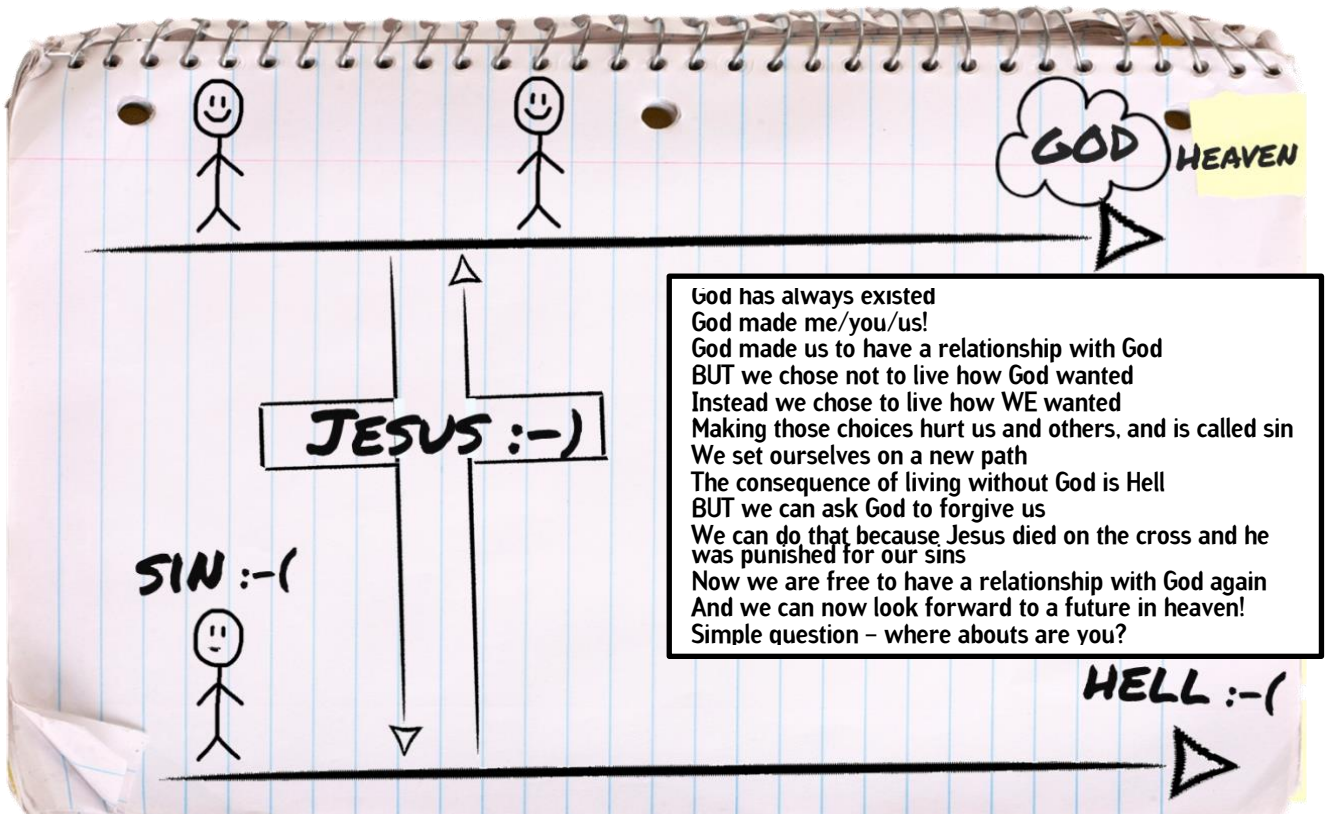 GOD
HEAVEN
God has always existed
God made me/you/us!
God made us to have a relationship with God
BUT we chose not to live how God wanted
Instead we chose to live how WE wanted
Making those choices hurt us and others, and is called sin
We set ourselves on a new path
The consequence of living without God is Hell
BUT we can ask God to forgive us
We can do that because Jesus died on the cross and he
was punished for our sins
Now we are free to have a relationship with God again
And we can now look forward to a future in heaven!
Simple question – where abouts are you?
JESUS :-)
SIN :-(
HELL :-(